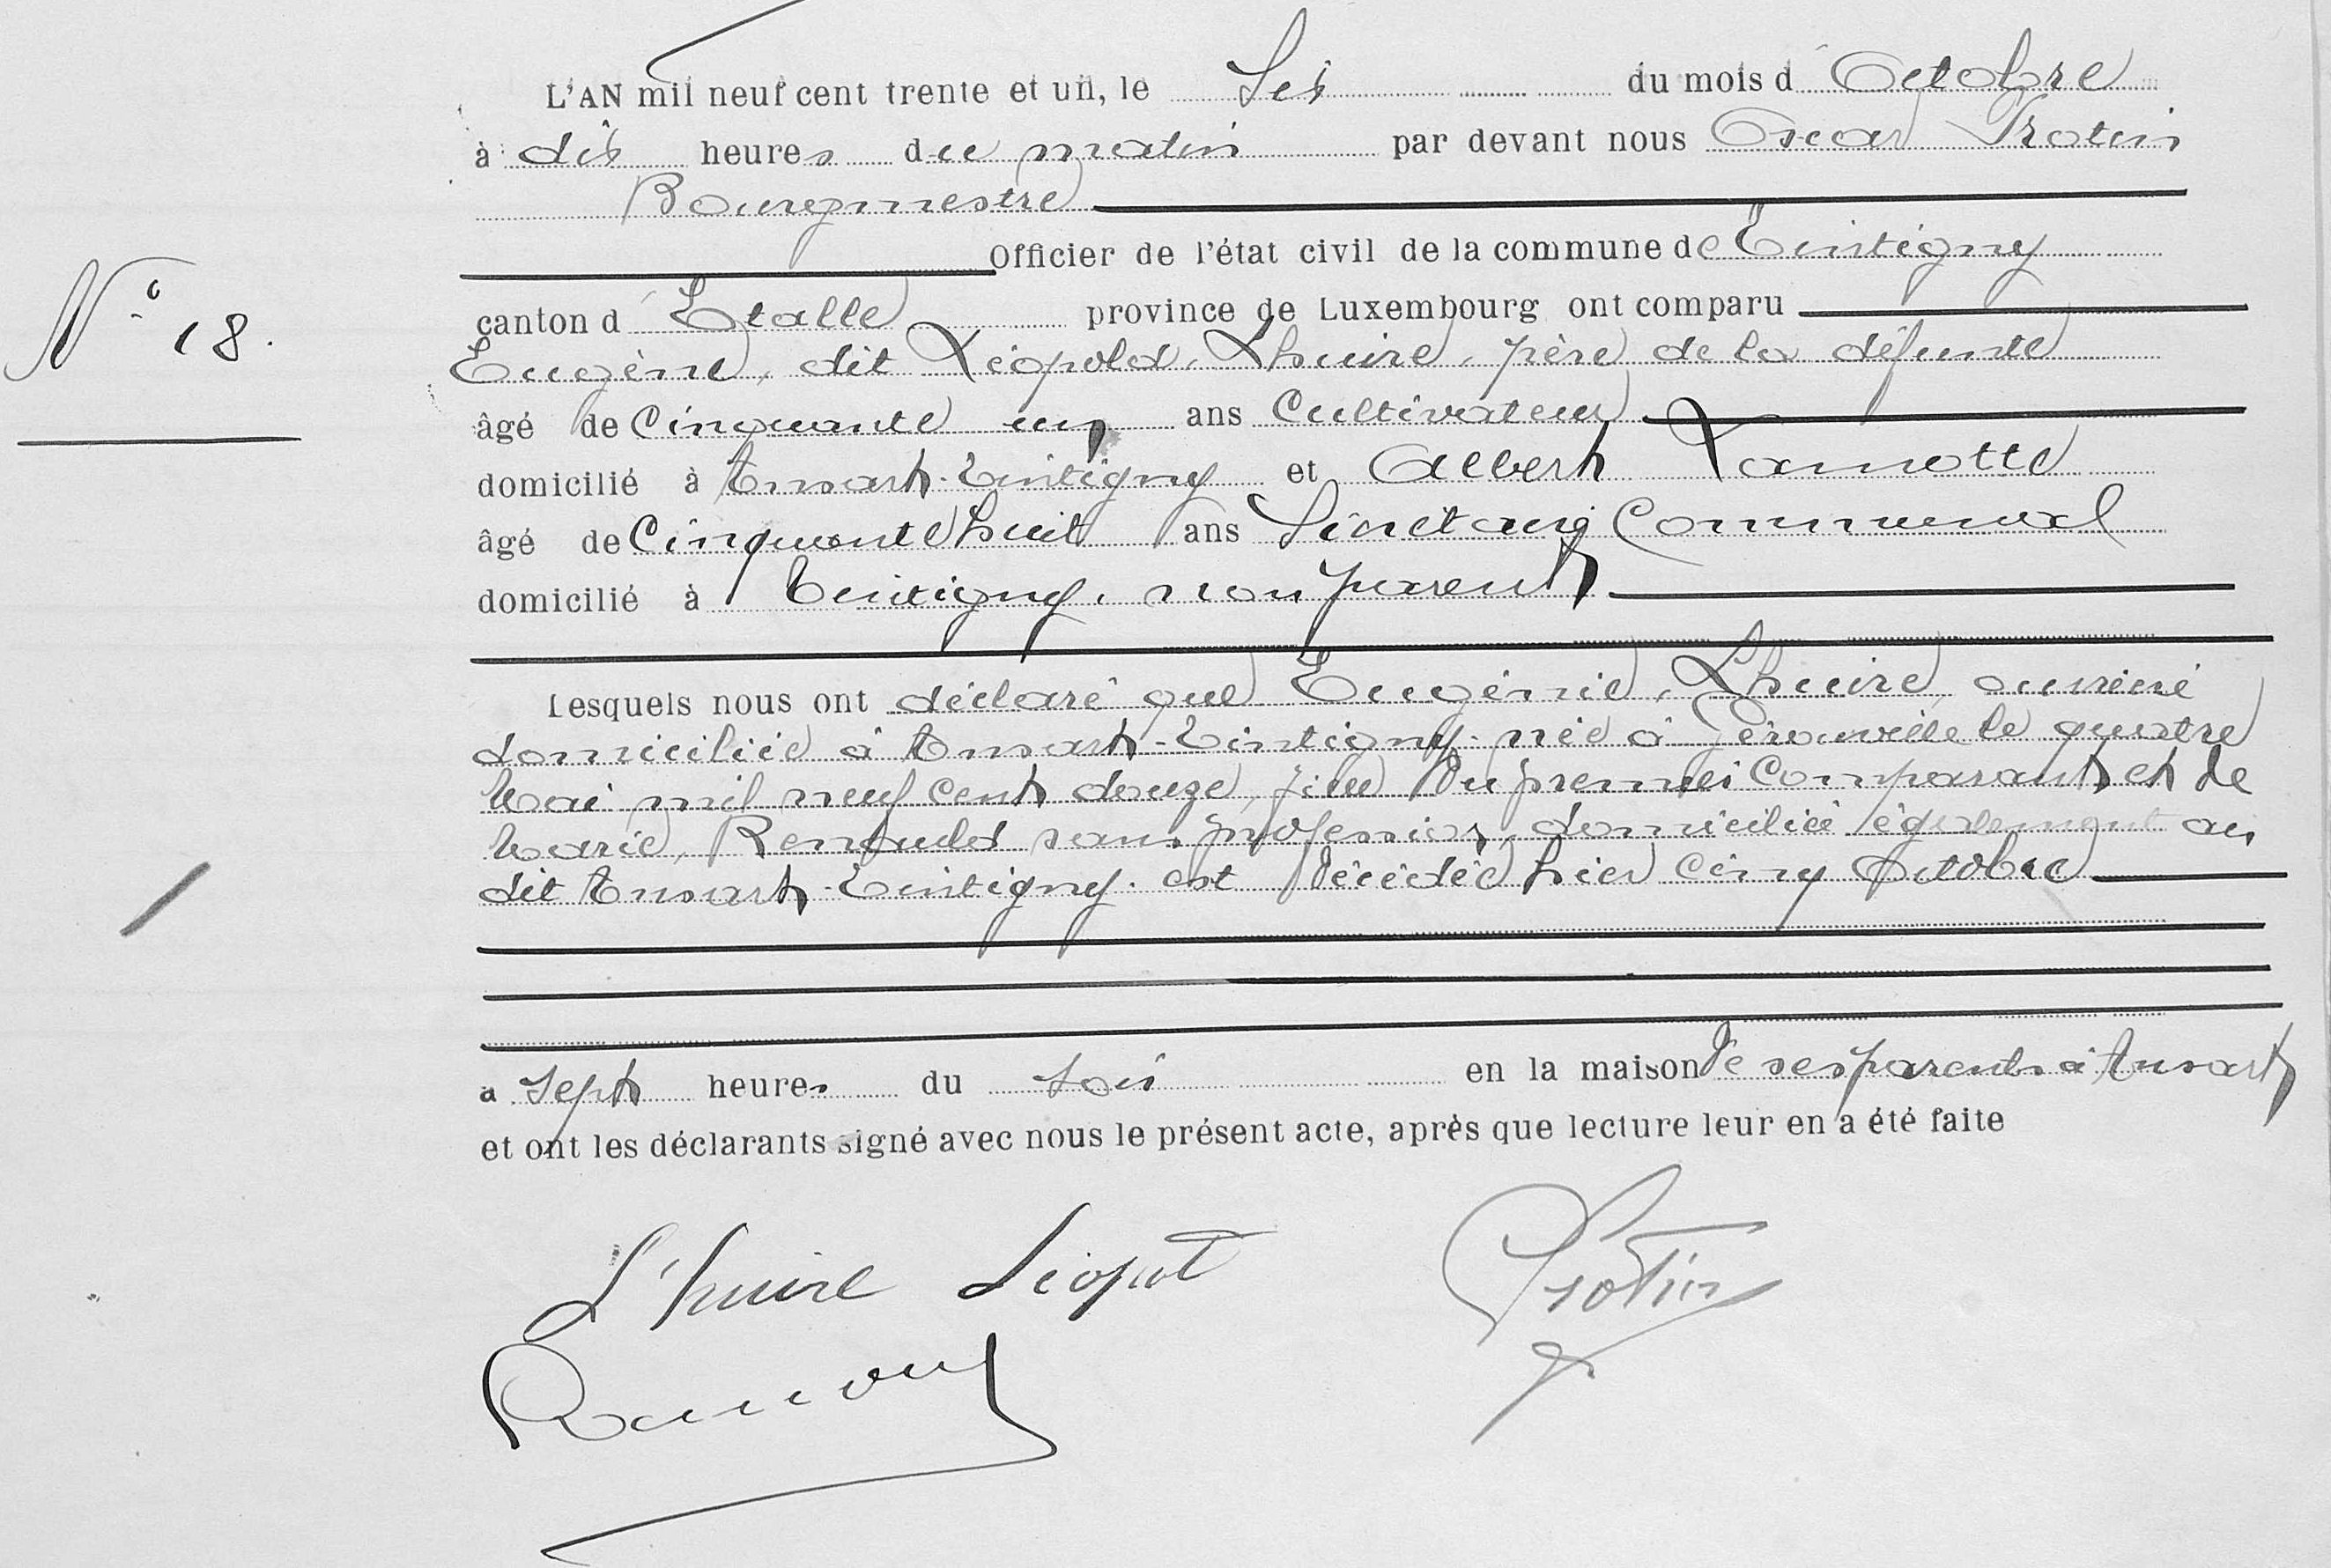 L'AN mil neuf cent trente et un, le Six du mois d'Octobre
à dix heures du matin par devant nous Oscar Protin
Bourgmestre
Officier de l'état civil de la commune de Tintigny
N° 18.
canton d'Etalle province de Luxembourg ont comparu
Eugène, dit Léopold, Lhuire, père de la défunte
âgé de Cinquante un ans Cultivateur
domicilié à Ansart-Tintigny et Albert Lamotte
âgé de Cinquante huit ans Secrétaire Communal
domicilié à Tintigny, non parent
Lesquels nous ont déclaré que Eugénie, Lhuire,
domiciliée à Ansart-Tintigny née à Gérouville le quatre
Mai mil neuf cent douze, fille du premier Comparant et de
Marie, sans profession, domiciliée également au
dit Ansart-Tintigny. est décédée hier cinq Octobre
a sept heures du soir en la maison de ses parents à Ansart
et ont les déclarants signé avec nous le présent acte, après que lecture leur en a été faite
L'huire Léopol Protin